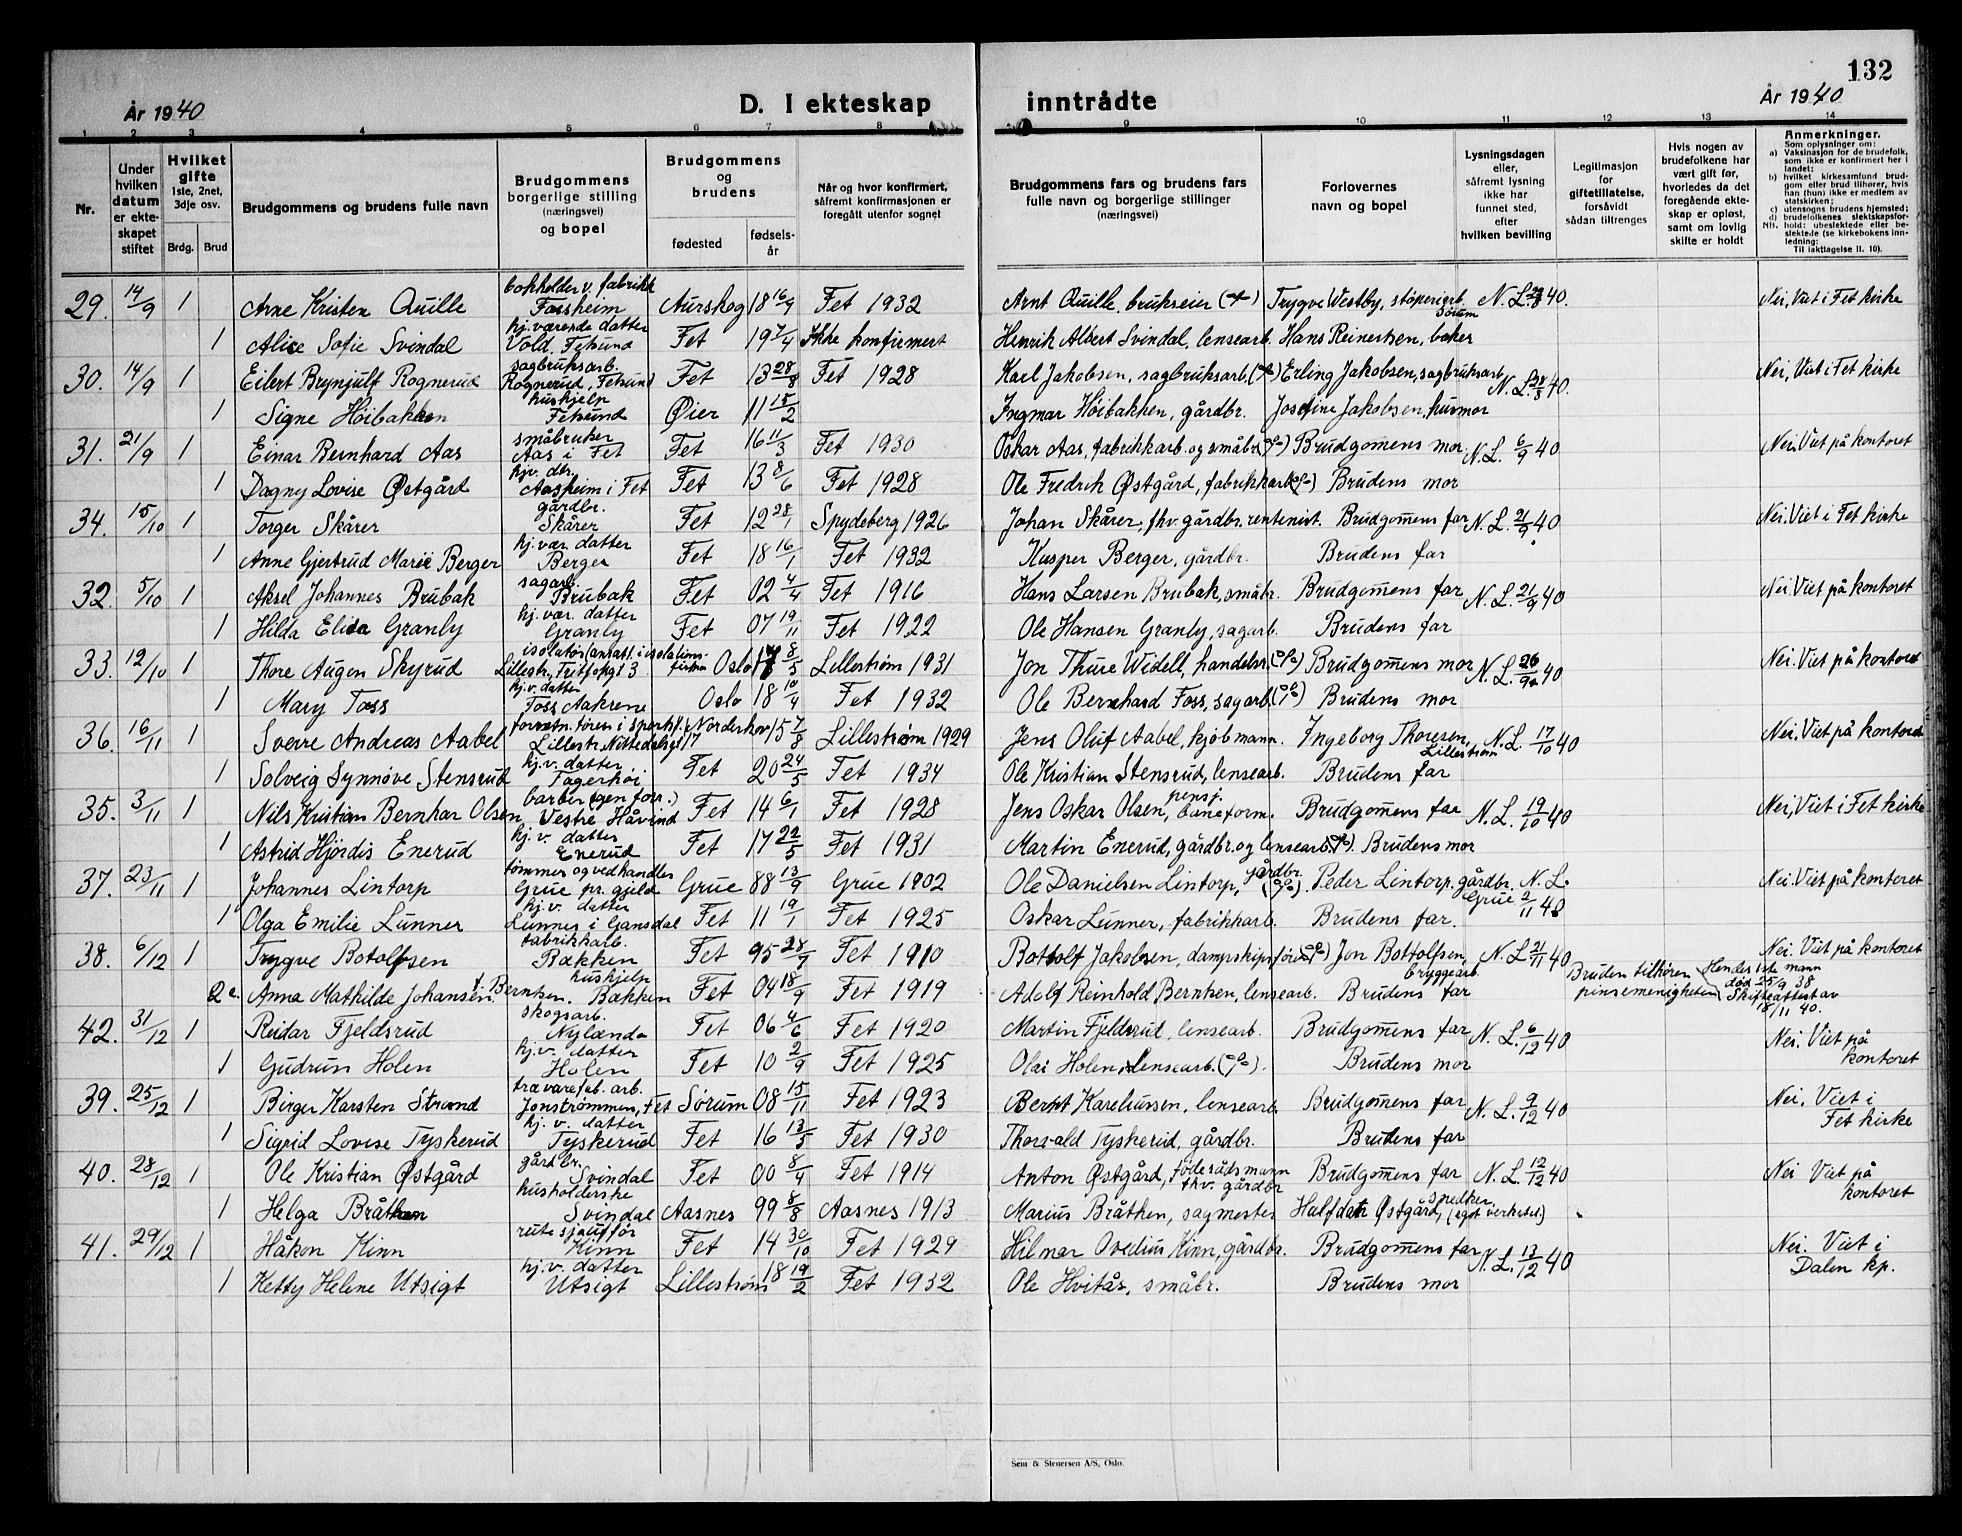 132
År 1940
D. I ekteskap inntrådte
År 1940
1 2 3 4 5 6 7 8 9 10 11 12 13 14
Nr.
Under hvilken datum er ekteskapet stiftet
Hvilket gifte 1ste, 2net, 3dje osv.
Brdg. Brud
Brudgommens og brudens fulle navn
Brudgommens borgerlige stilling (næringsvei) og bopel
Brudgommens og brudens
fødested fødselsår
Når og hvor konfirmert, såfremt konfirmasjonen er foregått utenfor sognet
Brudgommens fars og brudens fars fulle navn og borgerlige stillinger (næringsvei)
Forlovernes navn og bopel
Lysningsdagen eller, såfremt lysning ikke har funnet sted, efter hvilken bevilling
Legitimasjon for giftetillatelse, forsåvidt sådan tiltrenges
Hvis nogen av brudefolkene har vært gift før, hvorledes da det foregående ekteskap er opløst, samt om lovlig skifte er holdt
Anmerkninger.
Som oplysninger om:
a) Vaksinasjon for de brudefolk, som ikke er konfirmert her i landet;
b) hvilket kirkesamfund brudgom eller brud tilhører, hvis han (hun) ikke er medlem av statskirken;
c) utensogns brudens hjemsted;
d) brudefolkenes slektskapsforhold: ubeslektede eller beslektede (se kirkebokens innledning:
NB. Til iakttagelse II. 10).
29. 14/9 1 Arne Kristen Quille bokholder v. fabrikk Fossheim Aurskog 18 16/4 Fet 1932 Arnt Quille, brukseier (+) Trygve Westby, støperiarb. Sørum N. L. 28/8 40. Nei, Viet i Fet kirke
1 Alice Sofie Svindal hj. værende datter Vold, Fetsund Fet 19 7/4 Ikke konfirmert Henrik Albert Svindal, lensearb. Hans Reinertsen, baker
30. 14/9 1 Eilert Brynjulf Rognerud sagbruksarb. Rognerud, Fetsund Fet 13 28/8 Fet 1928 Karl Jakobsen, sagbruksarb. (+) Erling Jakobsen, sagbruksarb N. L. 28/8 40. Nei, Viet i Fet kirke
1 Signe Høibakken hushjelp Fetsund Øier 11 15/2 Ingmar Høibakken, gårdbr. Josefine Jakobsen, husmor
31. 21/9 1 Einar Bernhard Aas småbruker Aas i Fet Fet 16 11/3 Fet 1930 Oskar Aas, fabrikkarb. og småbr. Brudgomens mor N. L. 6/9 40 Nei. Viet på kontoret
1 Dagny Lovise Østgård hjv. dtr. Aasheim i Fet Fet 13 8/6 Fet 1928 Ole Fredrik Østgård, fabrikkarb. Brudens mor
34. 15/10 1 Torger Skårer gårdbr. Skårer Fet 12 28/1 Spydeberg 1926 Johan Skårer, fhv. gårdbr. rentenist. Brudgomens far N. L. 21/9 40 Nei. Viet i Fet kirke
1 Anne Gjertrud Marie Berger hj. vær. datter Berger Fet 18 16/1 Fet 1932 Kasper Berger, gårdbr. Brudens far
32. 5/10 1 Aksel Johannes Brubak sagarb. Brubak Fet 02 4/4 Fet 1916 Hans Larsen Brubak, småbr. Brudgomens far N. L. 21/9 40 Nei. Viet på kontoret
1 Hilda Elida Granly hj. vær. datter Granly Fet 07 19/11 Fet 1922 Ole Hansen Granly, sagarb. Brudens far
33. 12/10 1 Thore Augen Skyrud isolatør (ansatt i isolationsfirma Lillestr., Fritjofsgt 3 Oslo 17 8/5 Lillestrøm 1931 Jon Thure Widell, handelsr. Brudgomens mor N. L. 26/9 40 Nei. Viet på kontoret
1 Mary Foss hj. v. datter Foss Aakrene Oslo 18 10/4 Fet 1932 Ole Bernhard Foss, sagarb. Brudens mor
36. 16/11 1 Sverre Andreas Aabel Lillestr. Nittedalsgt 17 Norderhov 15 7/8 Lillestrøm 1929 Jens Oluf Aabel, kjøbmann. Ingeborg Thoresen, Lillestrøm N. L. 17/10 40 Nei, Viet på kontoret
1 Solveig Synnøve Stensrud hj. v. datter Fagerhøi Fet 20 24/5 Fet 1934 Ole Kristian Stensrud, lensearb. Brudens far
35. 3/11 1 Nils Kristian Bernhar Olsen barber (gen. forr.) Vestre Håvind Fet 14 6/1 Fet 1928 Jens Oskar Olsen, pensj. baneform. Brudgomens far N. L. 19/10 40 Nei, Viet i Fet kirke
1 Astrid Hjørdis Enerud hj. v. datter Enerud Fet 17 22/5 Fet 1931 Martin Enerud, gårdbr. og lensearb. Brudens mor
37. 23/11 1 Johannes Lintorp tømmer og vedhandler Grue pr. gjeld Grue 88 13/9 Grue 1902 Ole Danielsen Lintorp, gårdbr. Peder Lintorp. gårdbr. Grue N. L. 2/11 40 Nei. Viet på kontoret
1 Olga Emilie Lunner hj. v. datter Lunner i Gansdal Fet 11 19/1 Fet 1925 Oskar Lunner, fabrikkarb. Brudens far.
38. 6/12 1 Trygve Botolfsen fabrikkarb. Bakken Fet 95 28/7 Fet 1910 Bottolf Jakobsen, dampskipsfører Jon Bottolfsen, bryggearb. N. L. 21/11 40 Nei. Viet på kontoret
2. Anna Mathilde Johansen f. Berntsen. hushjelp Bakken Fet 04 18/9 Fet 1919 Adolf Reinhold Berntsen, lensearb. Brudens far Bruden tilhører pinsemenigheten Hendes 1ste mann død 25/9 38 Skifteattest av 18/11 40.
42. 31/12 1 Reidar Fjeldsrud skogsarb. Nylænde Fet 06 4/6 Fet 1920 Martin Fjeldsrud, lensearb. Brudgomens far N. L. 6/12 40 Nei. Viet på kontoret
1 Gudrun Holen hj. v. datter Holen Fet 10 2/9 Fet 1925 Olai Holen, lensearb. Brudens mor
39. 25/12 1 Birger Karsten Strand trævarefab. arb. Jonstrømmen, Fet Sørum 08 15/11 Fet 1923 Bernt Kareliussen, lensearb. Brudgomens far N. L. 9/12 40 Nei, Viet i Fet kirke
1 Sigrid Lovise Tyskerud hj. v. datter Tyskerud Fet 16 13/5 Fet 1930 Thorvald Tyskerud, gårdbr. Brudens far
40. 28/12 1 Ole Kristian Østgård gårdbr. Svindal Fet 00 8/4 Fet 1914 Anton Østgård, føderådsmann fhv. gårdbr Brudgomens far N. L. 12/12 40 Nei Viet på kontoret
1 Helga Bråthen husholderske Svindal Aasnes 99 8/8 Aasnes 1913 Marius Bråthen, sagmester Halfdan Østgård, snedker (eget verksted)
41. 29/12 1 Håkon Kinn rutesjauffør Kinn Fet 14 30/10 Fet 1929 Hilmar Ovedius Kinn, gårdbr. Brudgomens far N. L. 13/12 40 Nei. Viet i Dalen kp.
1 Hetty Helene Utsigt hj. v. datter Utsigt Lillestrøm 18 19/2 Fet 1932 Ole Hvitås, småbr. Brudens mor
Sem & Stenersen A/S, Oslo.